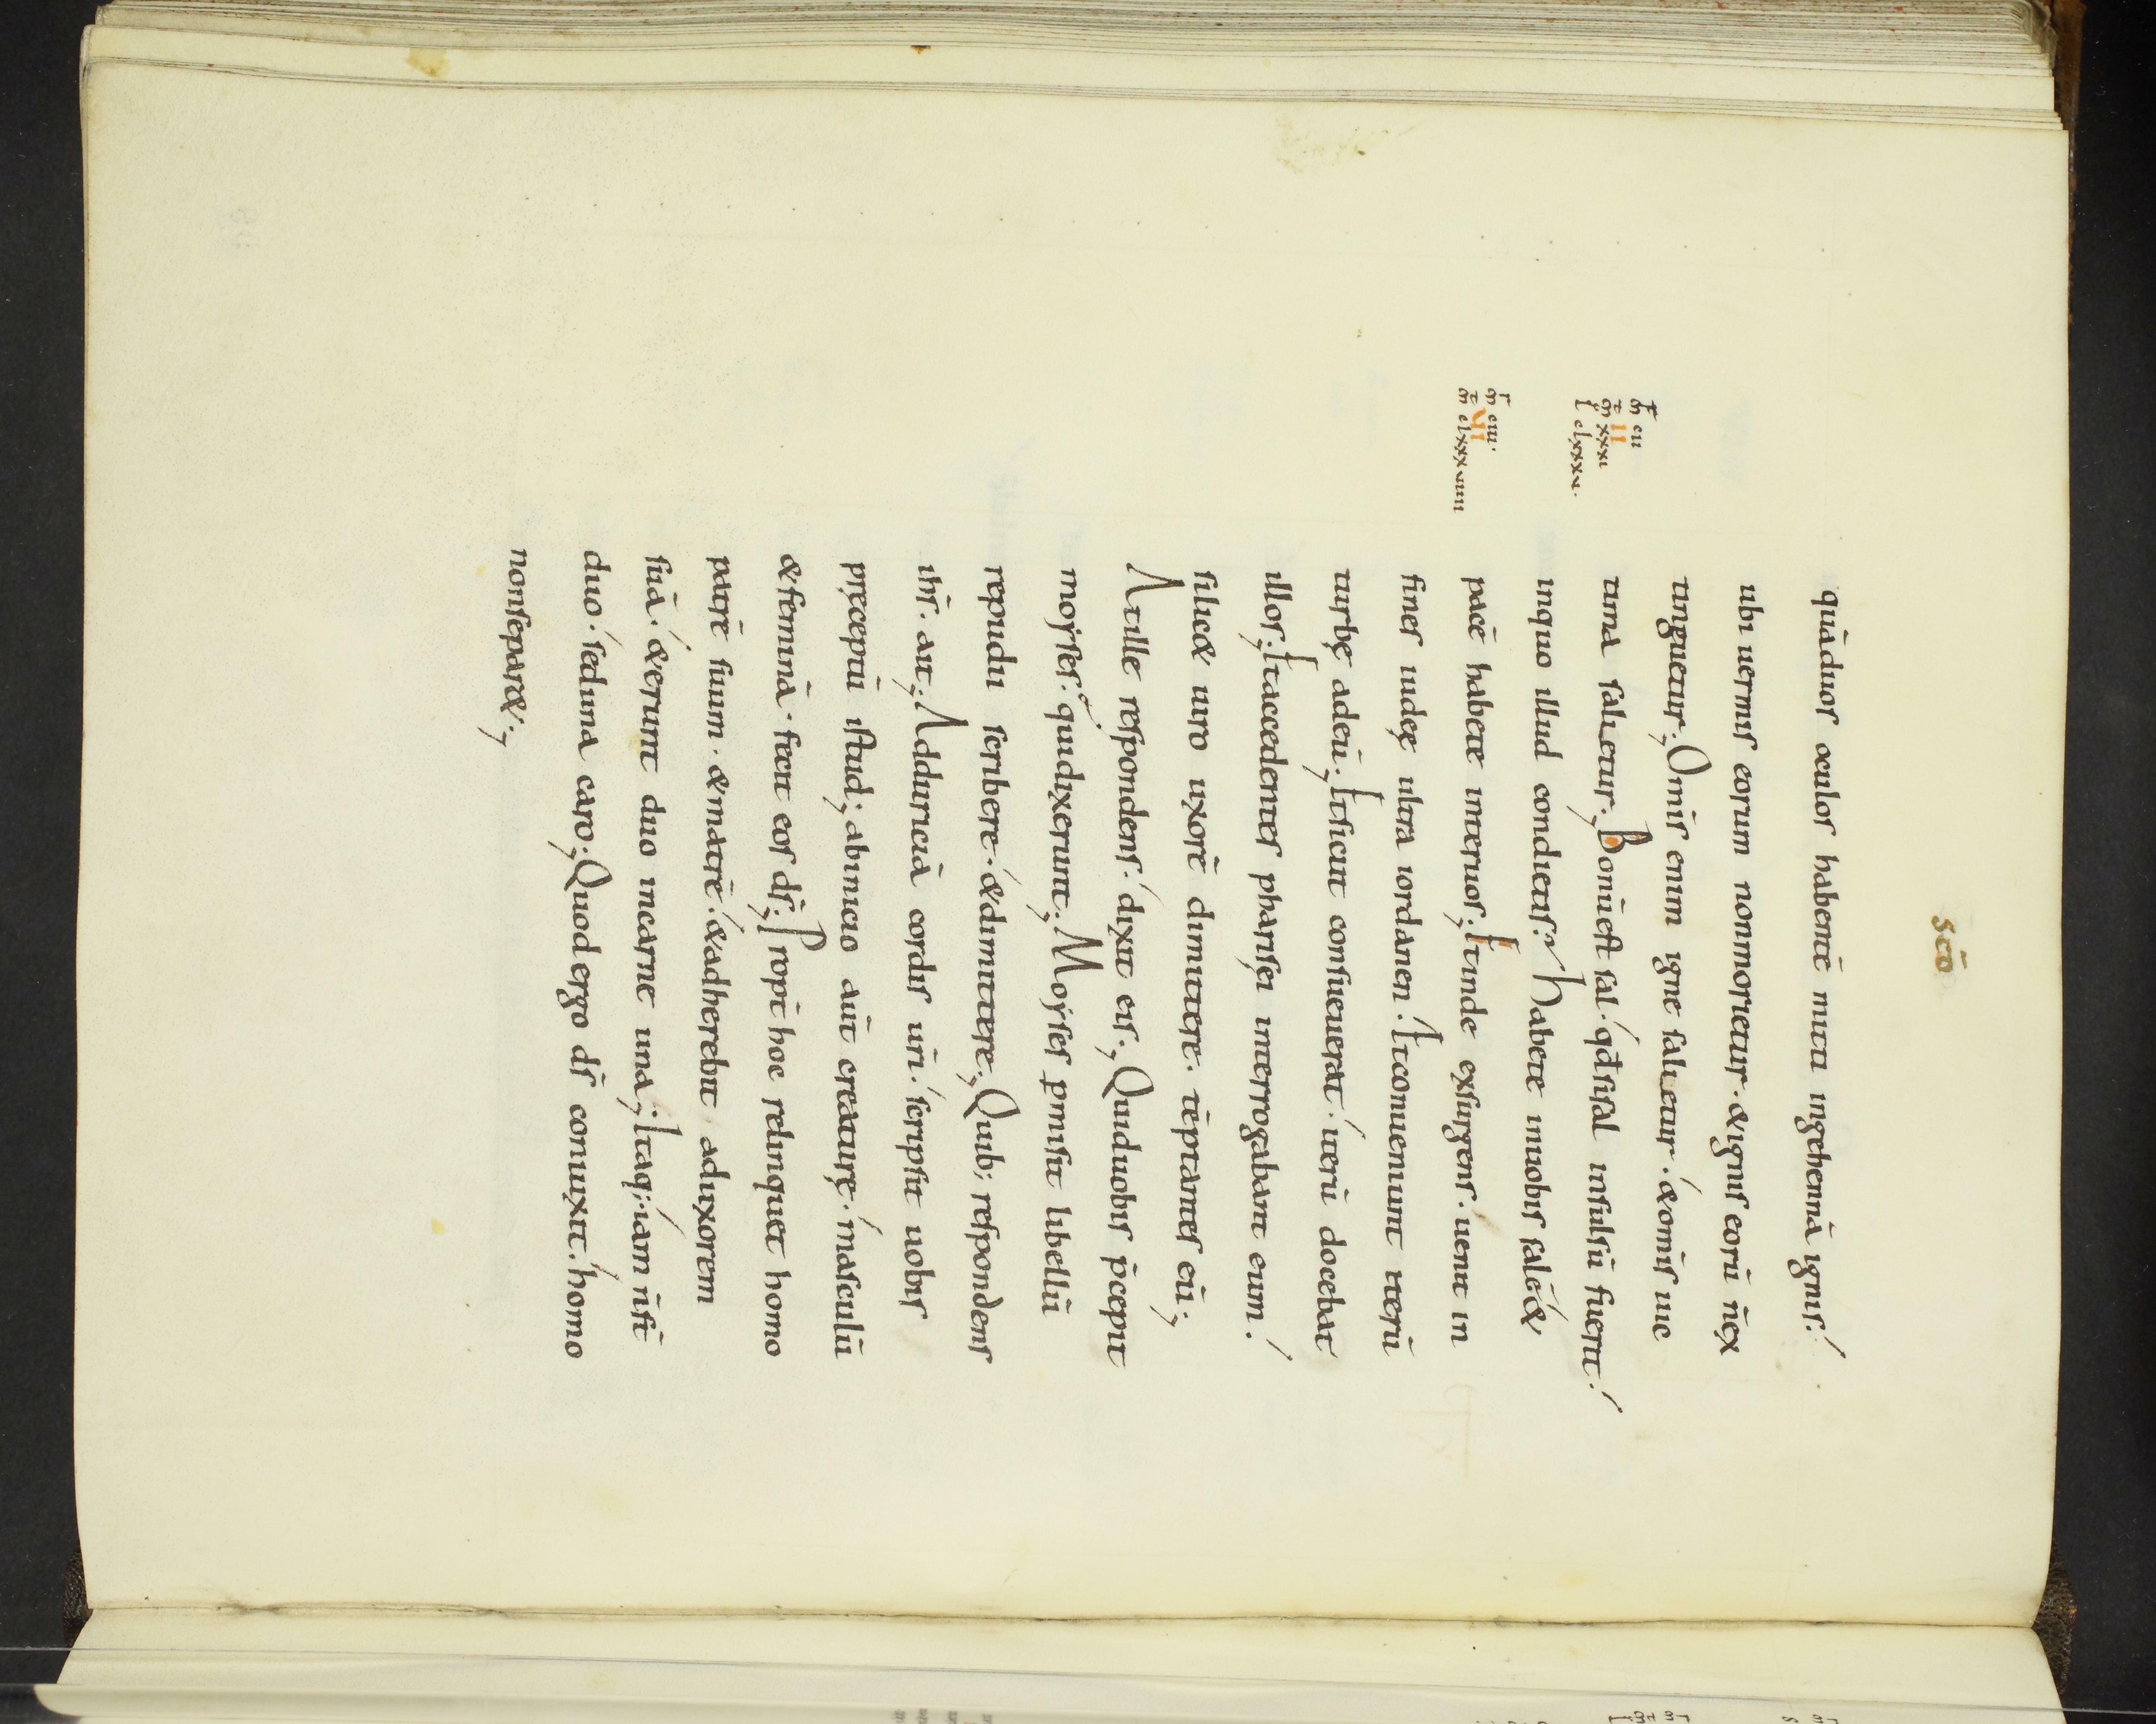 scd̄o
quāduos oculos habentē mitti ingehennā ignis.
ubi uermis eorum nonmorietur. &ignis eorū ñex
tinguetur; Omīs enim igne salietur. &omīs uic
tima salietur; Bonū est sal. qd̄sisal insulsū fuerit.
inquo illud condietis? Habete inuobis salē &
pacē habete interuos; Etinde exsurgens. uenit in
fines iudeę ultra iordanen. Etconueniunt iterū
turbę adeū; Etsicut consueuerat. iterū docebat
illos; Etaccedentes pharisęi interrogabant eum.
silic& uiro uxorē dimittere. tēptantes eū;
Atille respondens. dixit eis; Quiduobis p̄cepit
moyses. quidixerunt; Moyses pmisit libellū
repudii scribere. &dimittere; Quib; respondens
ihs̄. ait; Adduriciā cordis ur̄i. scripsit uobis
pręceptū istud; abinicio aūt creaturę. masculū
&feminā. fecit eos ds̄; Propt̄ hoc relinquet homo
patrē suum. &matrē. &adherebit aduxorem
suā. &erunt duo incarne una; Itaq; iam ñst̄
duo. seduna caro; Quod ergo ds̄ coniuxit. homo
nonsepar&;
m̄ cii
II
m̄ xxxi
l clxxxv.
m̄ ciii.
VI
m̄ clxxxviiii